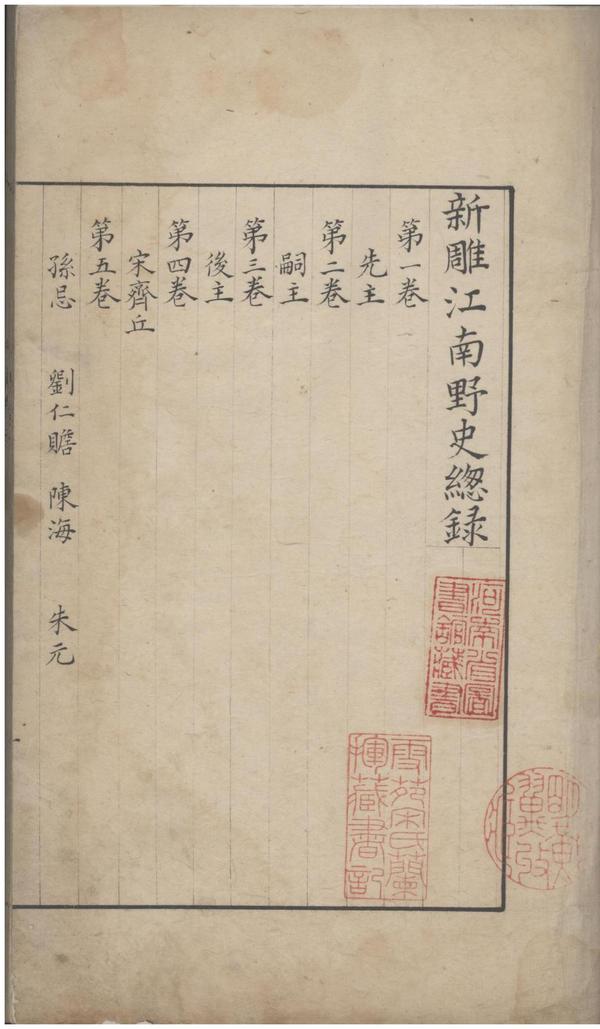 新雕江南野史總録
第一卷
先主
第二卷
嗣主
第三卷
後主
第四卷
宋齊丘
第五卷
孫忌 劉仁贍 陳海 朱元
河南省圖
書館藏書
雪苑宋氏蘭
揮藏書記